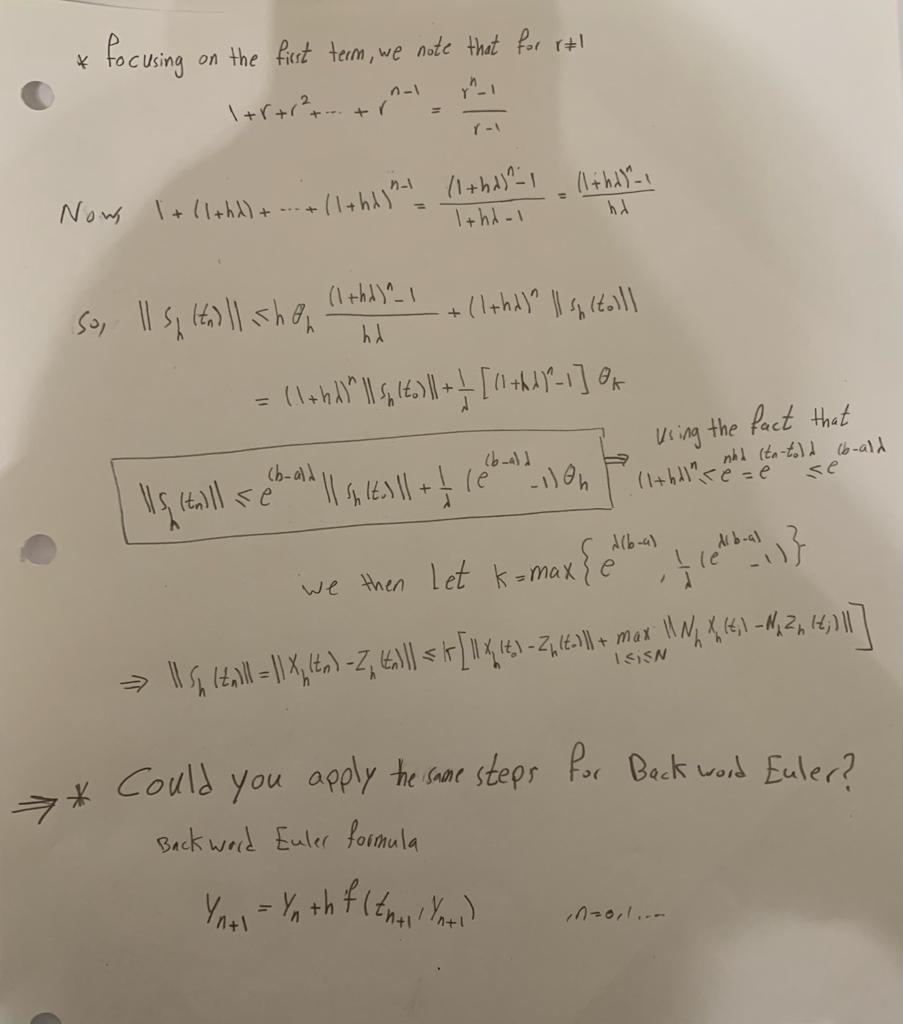 * focusing on the first term, we note that for r≠1
1+r+r²+...+r^{n-1} = (r^n-1)/(r-1)
Now 1+(1+hλ)+...+(1+hλ)^{n-1} = ((1+hλ)^n-1)/(1+hλ-1) = ((1+hλ)^n-1)/(hλ)
So, ||S_h(t_n)|| ≤ hθ_h ((1+hλ)^n-1)/(hλ) + (1+hλ)^n ||S_h(t_0)||
= (1+hλ)^n ||S_h(t_0)|| + 1/λ [(1+hλ)^n-1] θ_h
||S_h(t_n)|| ≤ e^{(b-a)λ} ||S_h(t_0)|| + 1/λ (e^{(b-a)λ} -1)θ_h
⇒ Using the fact that
(1+hλ)^n ≤ e^{nhλ} = e^{(t_n-t_0)λ} ≤ e^{(b-a)λ}
we then Let K=max{e^{λ(b-a)}, 1/λ (e^{λ(b-a)} -1)}
⇒ ||S_h(t_n)|| = ||X_h(t_n) - Z_h(t_n)|| ≤ K[||X_h(t_0) - Z_h(t_0)|| + max_{1≤i≤N} ||N_h X_h(t_i) - N_h Z_h(t_i)||]
⇒ * Could you apply the same steps for Backword Euler?
Backword Euler formula
Y_{n+1} = Y_n + h f(t_{n+1}, Y_{n+1}) , n=0,1....